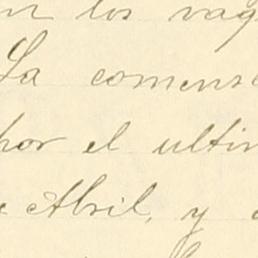 en los vag
La comens
por el ultim
e Abril, y